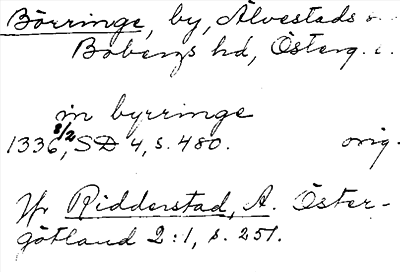 Börringe, by, Älvestads s.
Bobergs hd, Österg. l.
in byrringe
1336 8/2, SD 4, s. 480. orig.
Jfr Ridderstad, A. Öster-
götland 2:1, s. 251.